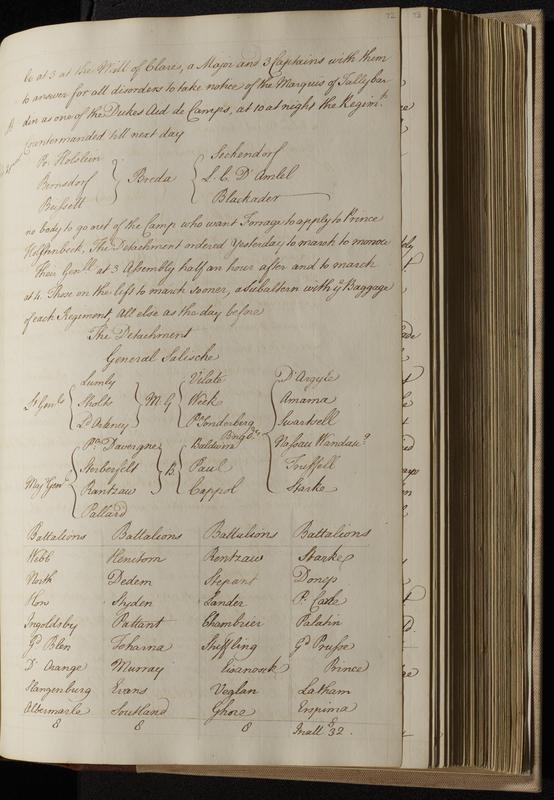 72
73
le at 3 at the Will of Clare, a Major and 3 Captains with them
to answer for all disorders to take notice of the Marquis of Tallybar
din as one of the Dukes Aid de Camps, at 10 at night the Regim.ts
Countermanded till next day
Pr. Holstein
Bernsdorf } Breda { L. C. D'Amlel
Bussell
Seckendorf
Blackader
no body to go out of the Camp who want Forrage to apply to Prince
The Detachment ordered Yesterday to march to morrow
Their Genll at 3 Assembly half an hour after and to march
at 4. Those on the left to march sooner, a Subaltern with ye Baggage
of each Regiment, all else as the day before
The Detachment
General Salische
Lt Genls { Lumly } M. G { Vilate
Sholts
Week
Ld Orkney
Pr Sonderberg
D'Argyle
Amama
Swartsell
Maj. Genls { Pr. Davergne } B { Baldwin
Brigdrs
Sterberfelt
Paul
Rantzaw
Cappol
Pallard
Nassau
Truffell
Starke
Battalions Battalions Battalions Battalions
Webb Rentzaw Starke
North Dedem Stepant Donys
How Styden Lander P. Carle
Ingoldsby Pallant Chambrier Palatin
Gd Blen Iohanna Gd Prusse
D'Orange Murray Lisanosek Prince
Hangenburg Evans Veglan Latham
Albermarle Soutland Ghore Erspima
8 8 8 8
In all 32.